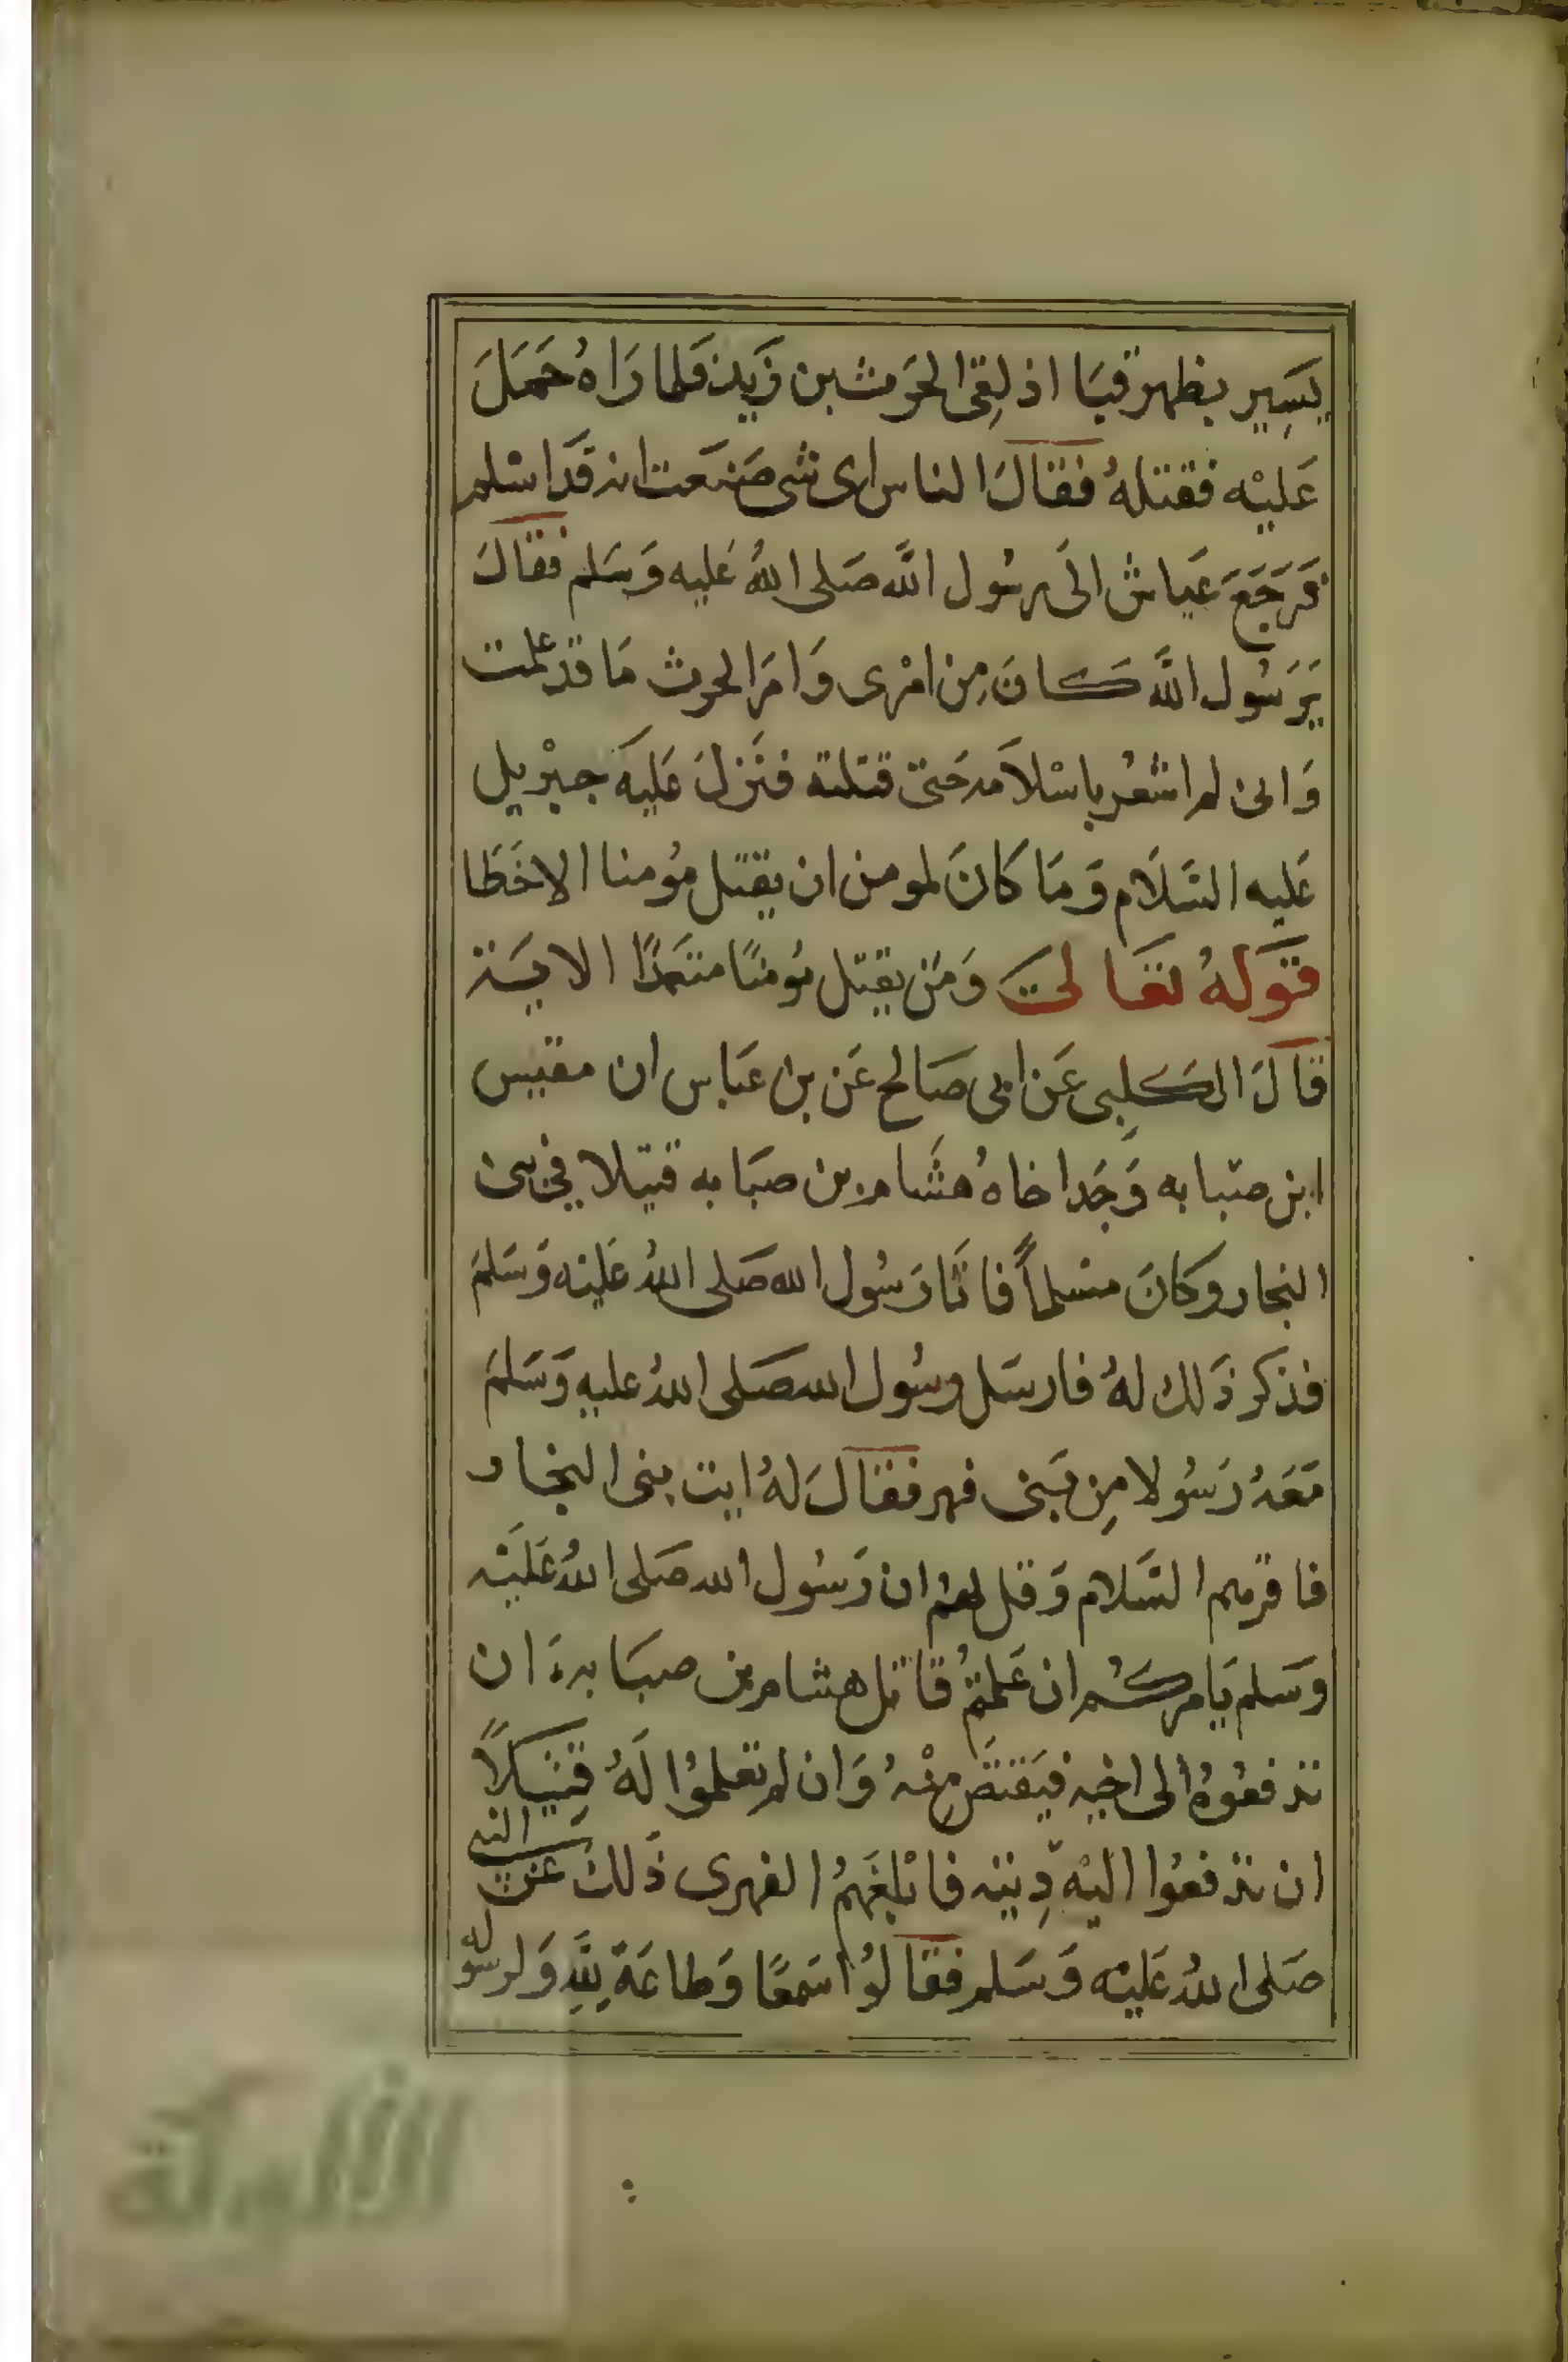 يَسِير بظهر قبَا اذ لِقىَ الحَرث بن زَيد فلما رَاهُ حَمَلَ
عَليْه فقتلهُ فقالَ الناس اى شى صَنعت انه قَد اسْلم
فَرَجَعَ عَياش الَى رسُول اللَّه صَلى اللهُ عَليه وَسَلم فقالَ
يَرَسُول اللَّه كانَ مِن امْرى وَامَر الحرث مَا قَد علمت
وَانى لم اشعُر باسْلاَمه حَتى قتلته فنَزلَ عَليَه جبْريل
عَليه السَّلَام وَمَا كَانَ لمومن ان يقتل مؤمنا الاخَطَا
قَولهُ تعَالىَ وَمَن يقتل مُومنًا متعَمدًا الايَة
قاَلَ الكلِبى عَن ابى صَالح عَن بن عَباس ان مقيس
ابن صبَابه وَجَد اخاهُ هشَام بن صبَابه قتيلا فى بنى
النجار وكانَ مسلماً فاتَا رَسُول الله صَلى اللهُ عَليْه وَسَلمَ
فذكر ذَلك لهُ فارسَل رسُول الله صَلى اللهُ عليهِ وَسَلمَ
مَعَهُ رَسُولا مِن بَنى فهر فقالَ لهُ ايت بنى النجار
فاقرهم السَّلام وَقل لهُم ان رَسُول الله صَلى اللهُ عَليَه
وَسَلم يَامركُم ان عَلمتُم قاتل هشام بن صبَابهَ ان
تدفعُوهُ الى اخيه فيَقتصَّ مِنْهُ وَان لم تعلموُا لَهُ قتِيَلاً
ان تدفعُوا اليْه دِيته فابْلغَهمُ الفهرى ذَلك عَن النبى
صَلى اللهُ عَليْه وَسَلم فقالوُا سَمعًا وَطاعَة لِلَّهِ وَلرسُوله
الألوكة